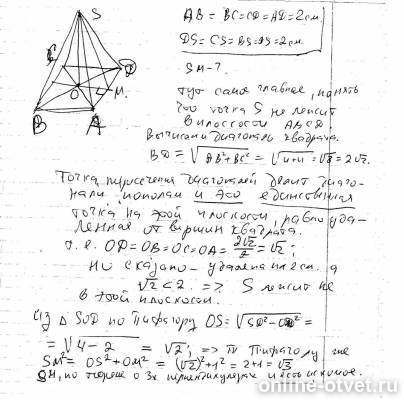 S
C
D
O
M
B
A
AB = BC = CD = AD = 2см
DS = CS = BS = AS = 2см.
SM - ?
Тут самое главное, понять
что точка S не лежит
в плоскости ABCD.
Вычислим диагональ квадрата.
BD = √AB²+BC² = √4+4 = √8 = 2√2.
Точка пересечения диагоналей делит диаго-
нали пополам и это единственная
точка на этой плоскости, равноуда-
ленная от вершин квадрата.
т.е. OD = OB = OC = OA = 2√2/2 = √2;
но сказано - удалена на 2 см. а
√2 < 2 => S лежит не
в этой плоскости.
Из △ SOD по Пифагору OS = √SD²-OD² =
= √4-2 = √2; => по Пифагору же
SM² = OS² + OM² = (√2)² + 1² = 2+1 = √3
SM, по теореме о 3х перпендикулярах и есть искомое.
online-otvet.ru